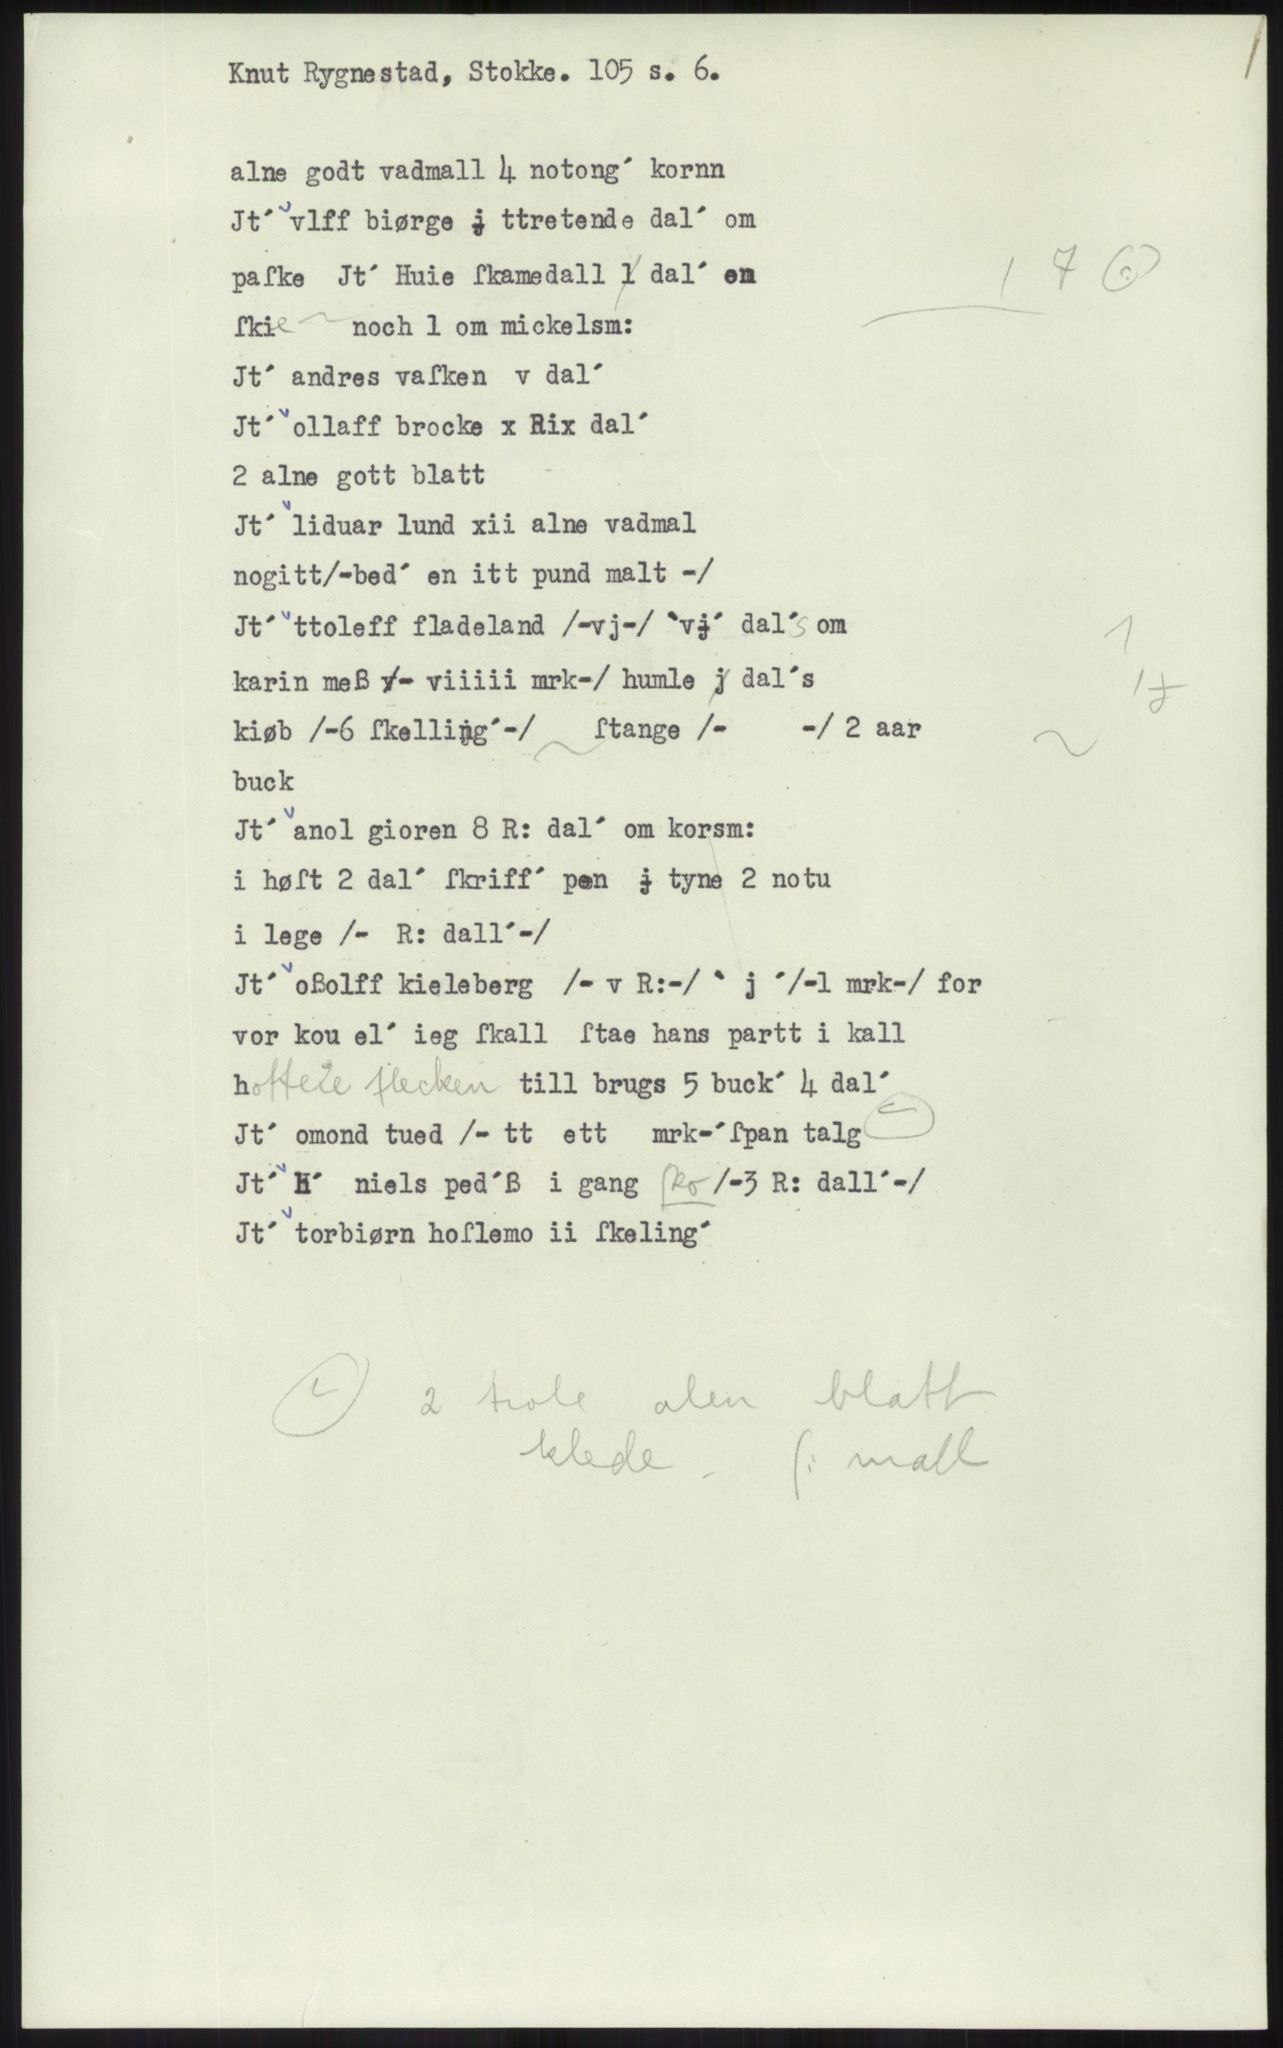 Knut Rygnestad, Stokke. 105 s. 6.
alne godt vadmall 4 notong´ kornn
Jt´ vlff biørge j ttretende dal´ om
paſke Jt´ Huie ſkamedall 1 dal´ en
ſkie noch 1 om mickelsm:
Jt´ andres vaſken v dal´
Jt´ ollaff brocke x Rix dal´
2 alne gott blatt
Jt´ liduar lund xii alne vadmal
nogitt/-bed´ en itt pund malt -/
Jt´ ttoleff fladeland /-vj-/ `vj´ dal´s om
karin meß /- viiiii mrk-/ humle j dal´s
kiøb /-6 ſkelling´-/ ſtange /- -/ 2 aar
buck
Jt´ anol gioren 8 R: dal´ om korsm:
i høſt 2 dal´ ſkriff´ pen j tyne 2 notu
i lege /- R: dall´-/
Jt´ oßolff kieleberg /- v R:-/ ` j ´/-l mrk-/ for
vor kou el´ ieg ſkall ſtae hans partt i kall
hotteie flecken till brugs 5 buck´ 4 dal´
Jt´ omond tued /- tt ett mrk-´ſpan talg
Jt´ H´ niels ped´ß i gang ſko /-3 R: dall´-/
Jt´ torbiørn hoſlemo ii ſkeling´
2 alen blatt
klede . (: mall